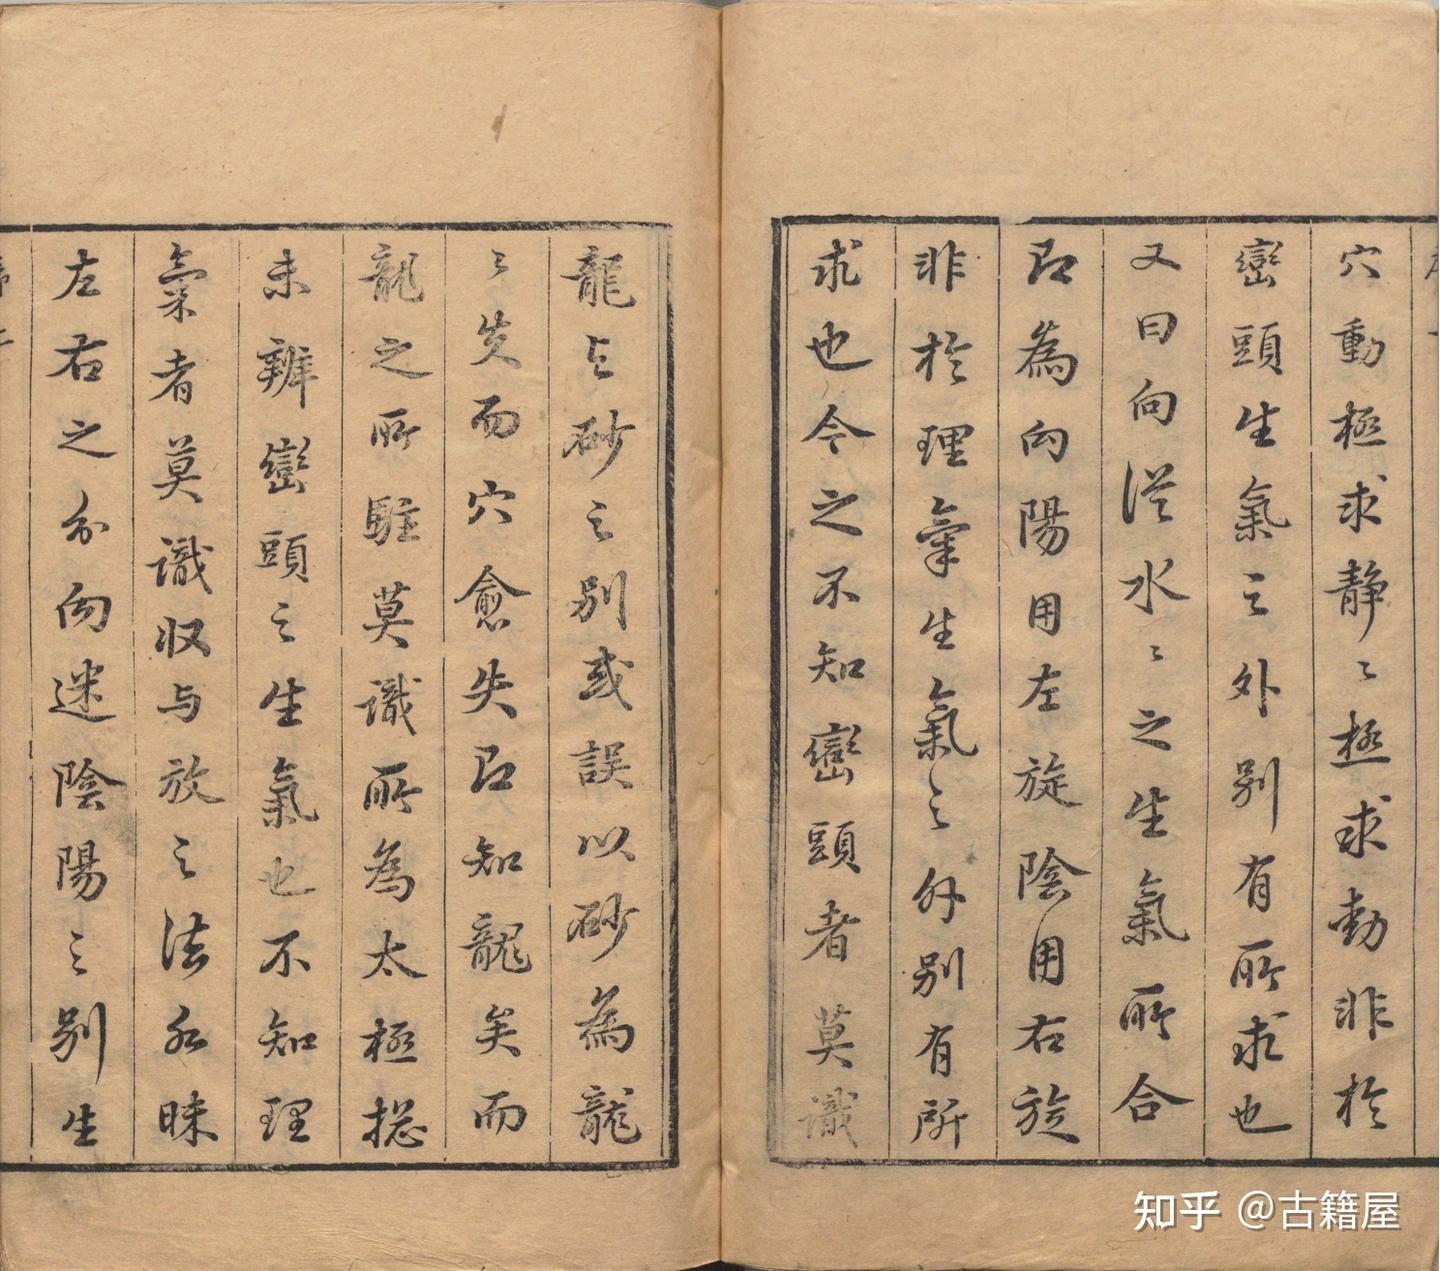 穴動極求静〻極求動非於
巒頭生氣之外別有所求也
又曰向從水〻之生氣所合
即為向陽用左旋陰用右旋
非於理氣生氣之外別有所
求也今之不知巒頭者莫識
龍与砂之別或誤以砂為龍
〻失而穴愈失即知龍矣而
龍之所駐莫識所為太極捴
未辨巒頭之生氣也不知理
氣者莫識収与放之法分昧
左右之分向迷陰陽之別生
知乎 @古籍屋